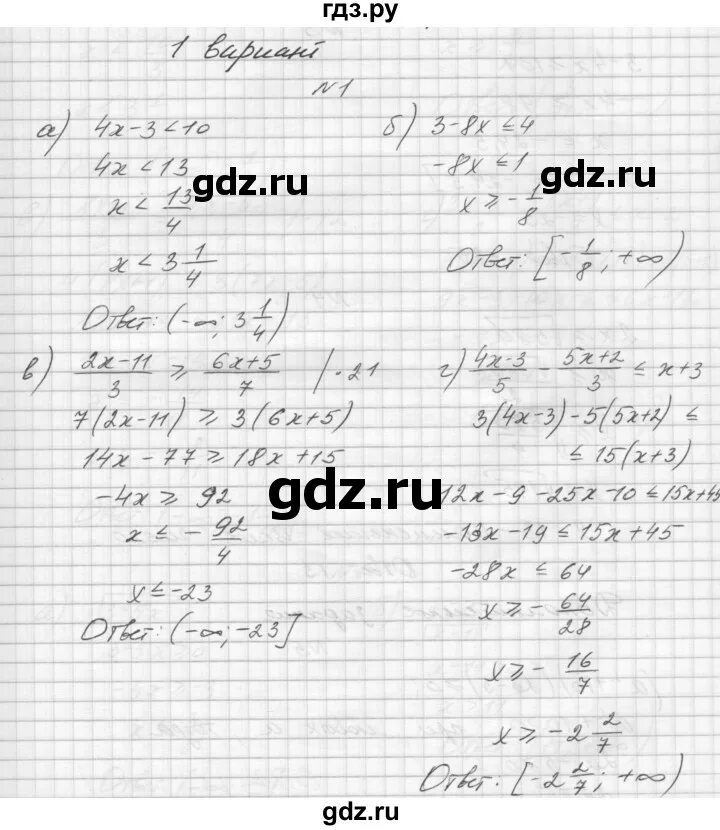 гдз.ру
1 вариант
№1
а) 4x-3<10
4x<13
x<13/4
x<3 1/4
Ответ: (-∞; 3 1/4)
б) 3-8x≤4
-8x≤1
x≥-1/8
Ответ: [-1/8; +∞)
gdz.ru
gdz.ru
в) (2x-11)/3 ≥ (6x+5)/7 |·21
7(2x-11)≥3(6x+5)
14x-77≥18x+15
-4x≥92
x≤-92/4
x≤-23
Ответ: (-∞; -23]
gdz.ru
г) (4x-3)/5 - (5x+2)/3 ≤ x+3
3(4x-3)-5(5x+2)≤
≤15(x+3)
12x-9-25x-10≤15x+45
-13x-19≤15x+45
-28x≤64
x≥-64/28
x≥-16/7
x≥-2 2/7
Ответ: [-2 2/7; +∞)
gdz.ru